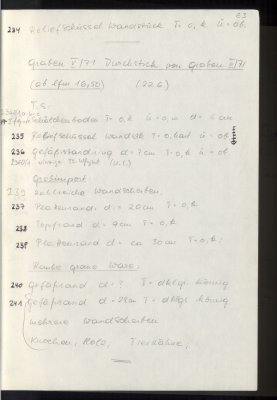 63
234 Reliefschüssel Wandstück T= o,k ü= ob.
Graben V/71 Durchstich von Graben II/71
(ab lfm 16,50) (22.6)
T.S.
Schälchenboden T= o,k ü= o,w d= 6 cm
235 Reliefschüssel wandstk T= o, hart ü= ob
236 Gefäßwandung d= ? cm T= o,k ü= ob
einige TS Wfgmt (u.t.)
Grobimport
139 zahlreiche Wandscherben.
237 Plattenrand d= 20cm T= o,k
238 Topfrand d= 9cm T= o,k
239 Plattenrand d= ca 30cm T= o,k;
Rauhe graue Ware:
240 Gefäßrand d= ? T= dklgr. körnig
241 Gefäßrand d= 21cm T= dklgr körnig
mehrere Wandscherben
Knochen, Holz, Tierzähne,